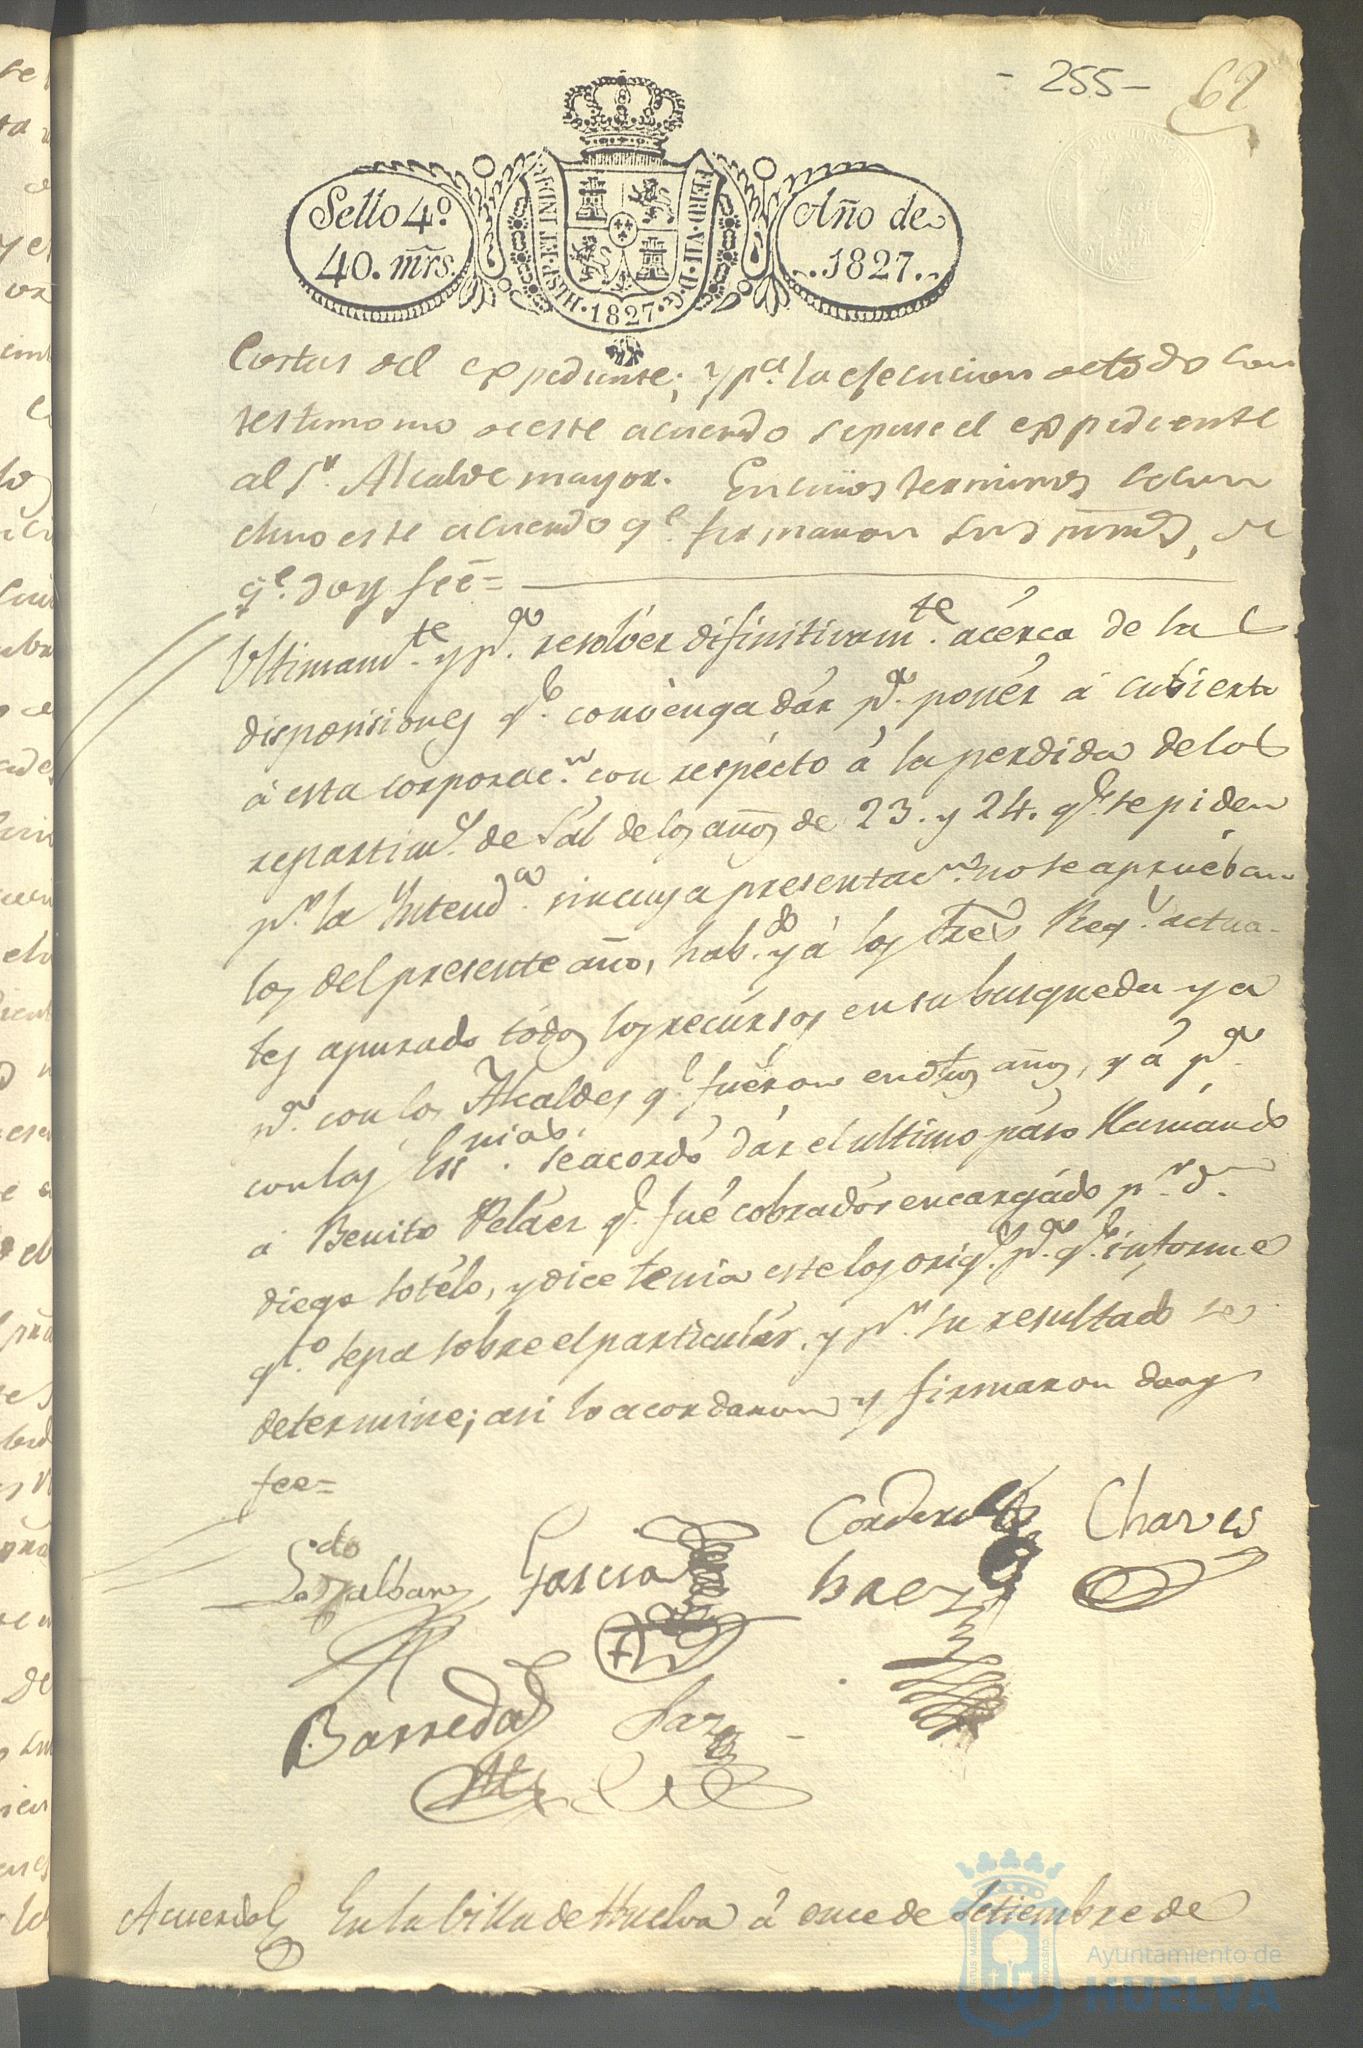 - 255 -
62
Sello 4º.
40. mrs.
HISP. ET IND. R.
FERD. VII. D. G.
1827
Año de
1827.
Costas del expediente; y pª. la efecucion de todo con
testimonio de este acuerdo se pase el expediente
al Sr. Alcalde mayor. En cuios terminos
este acuerdo qe. firmaron sus mrds, de
qe. doy feé=
Ultimamte. y pª. resolvér difinitivamte. acérca de las
disposiciones qe. convénga dár pª. ponér á cubierto
á esta corporacn. con respécto á la perdida de los
repartims. de Sal de los años de 23. y 24. qe. se piden
pr. la Intendª. sin cuya presentacn. no se apruéban
los del presente año, habdo. yá los tres Reqs. actua-
les apurado tódos los recúrsos en su busqueda ya
pª. con los Alcaldes qe. fuéron en dhos años, y á pª.
con las Essnias. se acordó dár el ultimo páso llamando
á Benito Peláez qe. fué cobradór encargádo pr. Dn.
Diego Sotélo, y dice tenia este los origs. pª. qe. informe
qto. sepa sobre el particulár, y pr. su resultado se
determine; asi lo acordaron y firmaron doy
fee=
Ldo.
Garcia
Cordero
Chaves
Barreda
Acuerdo En la Villa de Huelva á once de Setiembre de
Ayuntamiento de
HUELVA